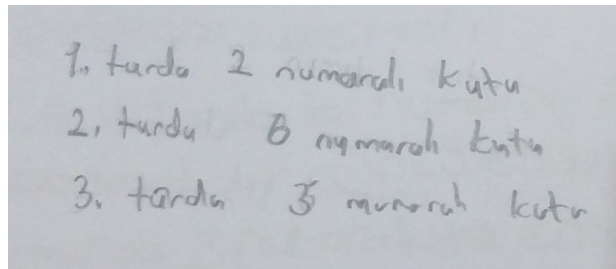 1. turda 2 numaralı kutu
2. turda 6 numaralı kutu
3. turda 5 numaralı kutu